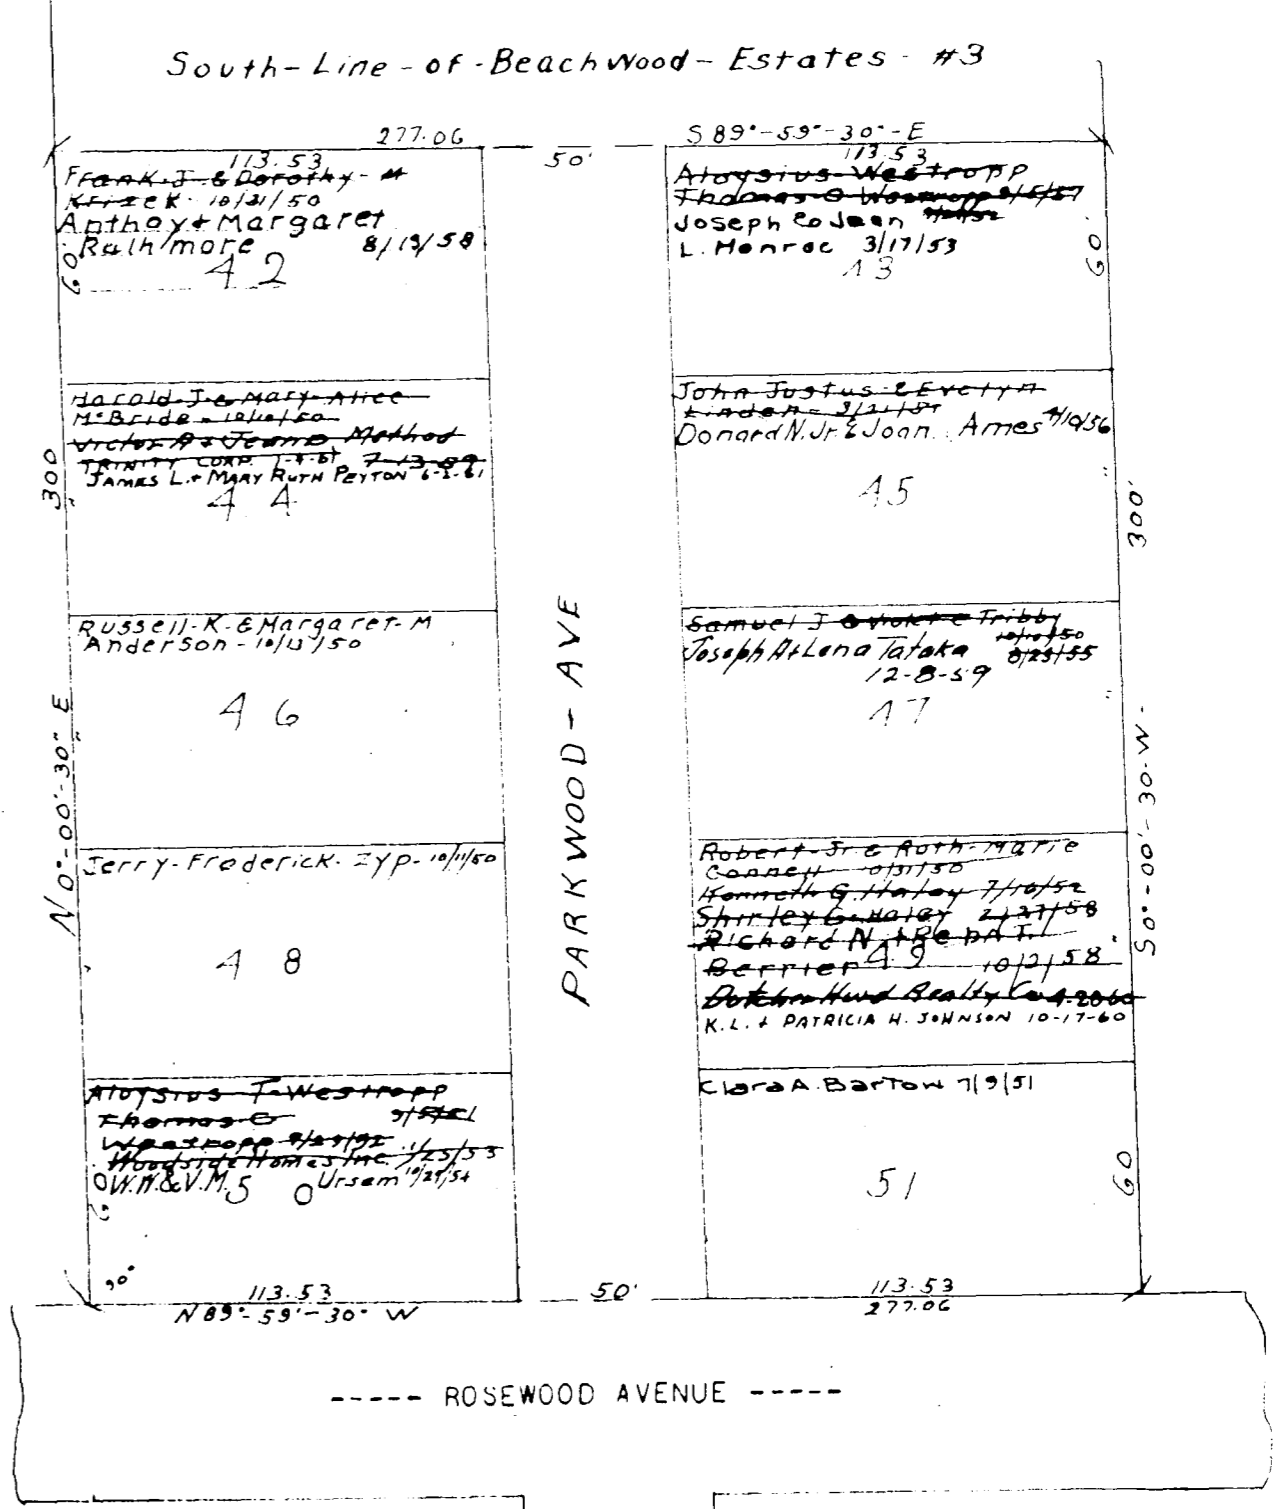 South-Line-of-Beachwood-Estates-#3
277.06
S 89°-59'-30"-E
113.53
50'
113.53
Frank J. & Dorothy - M
Krizek 10/31/50
Anthoy + Margaret
Rulhmore 8/19/58
60
42
Aloysius Westropp
Thomas O Westropp
Joseph & Jean
L. Monroe 3/17/53
60
43
Harold J & Mary Alice
McBride - 10/10/50
Victor A & Jeanne Method
TRINITY CORP. 7-13-59
JAMES L. + MARY RUTH PEYTON 6-2-61
44
300
John Justus & Evelyn
Linden
Donard N. Jr. & Joan Ames 4/10/56
45
300'
Russell-K. & Margaret-M
Anderson - 10/13/50
46
Samuel J & Violet E Tribby
10/10/50
Joseph A + Lena Tataka 8/23/55
12-8-59
47
PARKWOOD-AVE
N 0°-00'-30" E
S 0°-00'-30-W-
Jerry-Frederick-Zyp- 10/11/50
48
Robert Jr & Ruth Marie
Connell 10/31/50
Kenneth G. Haley 7/10/52
Shirley G. Haley 2/27/58
Richard N. + Reba T.
Berrier 10/2/58
49
Realty Co 4-20-60
K.L. + PATRICIA H. JOHNSON 10-17-60
Aloysius T. Westropp
Thomas O
Westropp
Woodside Homes Inc. 1/25/53
W.W. & V.M. Ursem 10/29/54
50
60
90°
Clara A. Bartow 7/9/51
51
60
113.53
50'
113.53
N 89°-59'-30" W
277.06
----- ROSEWOOD AVENUE -----